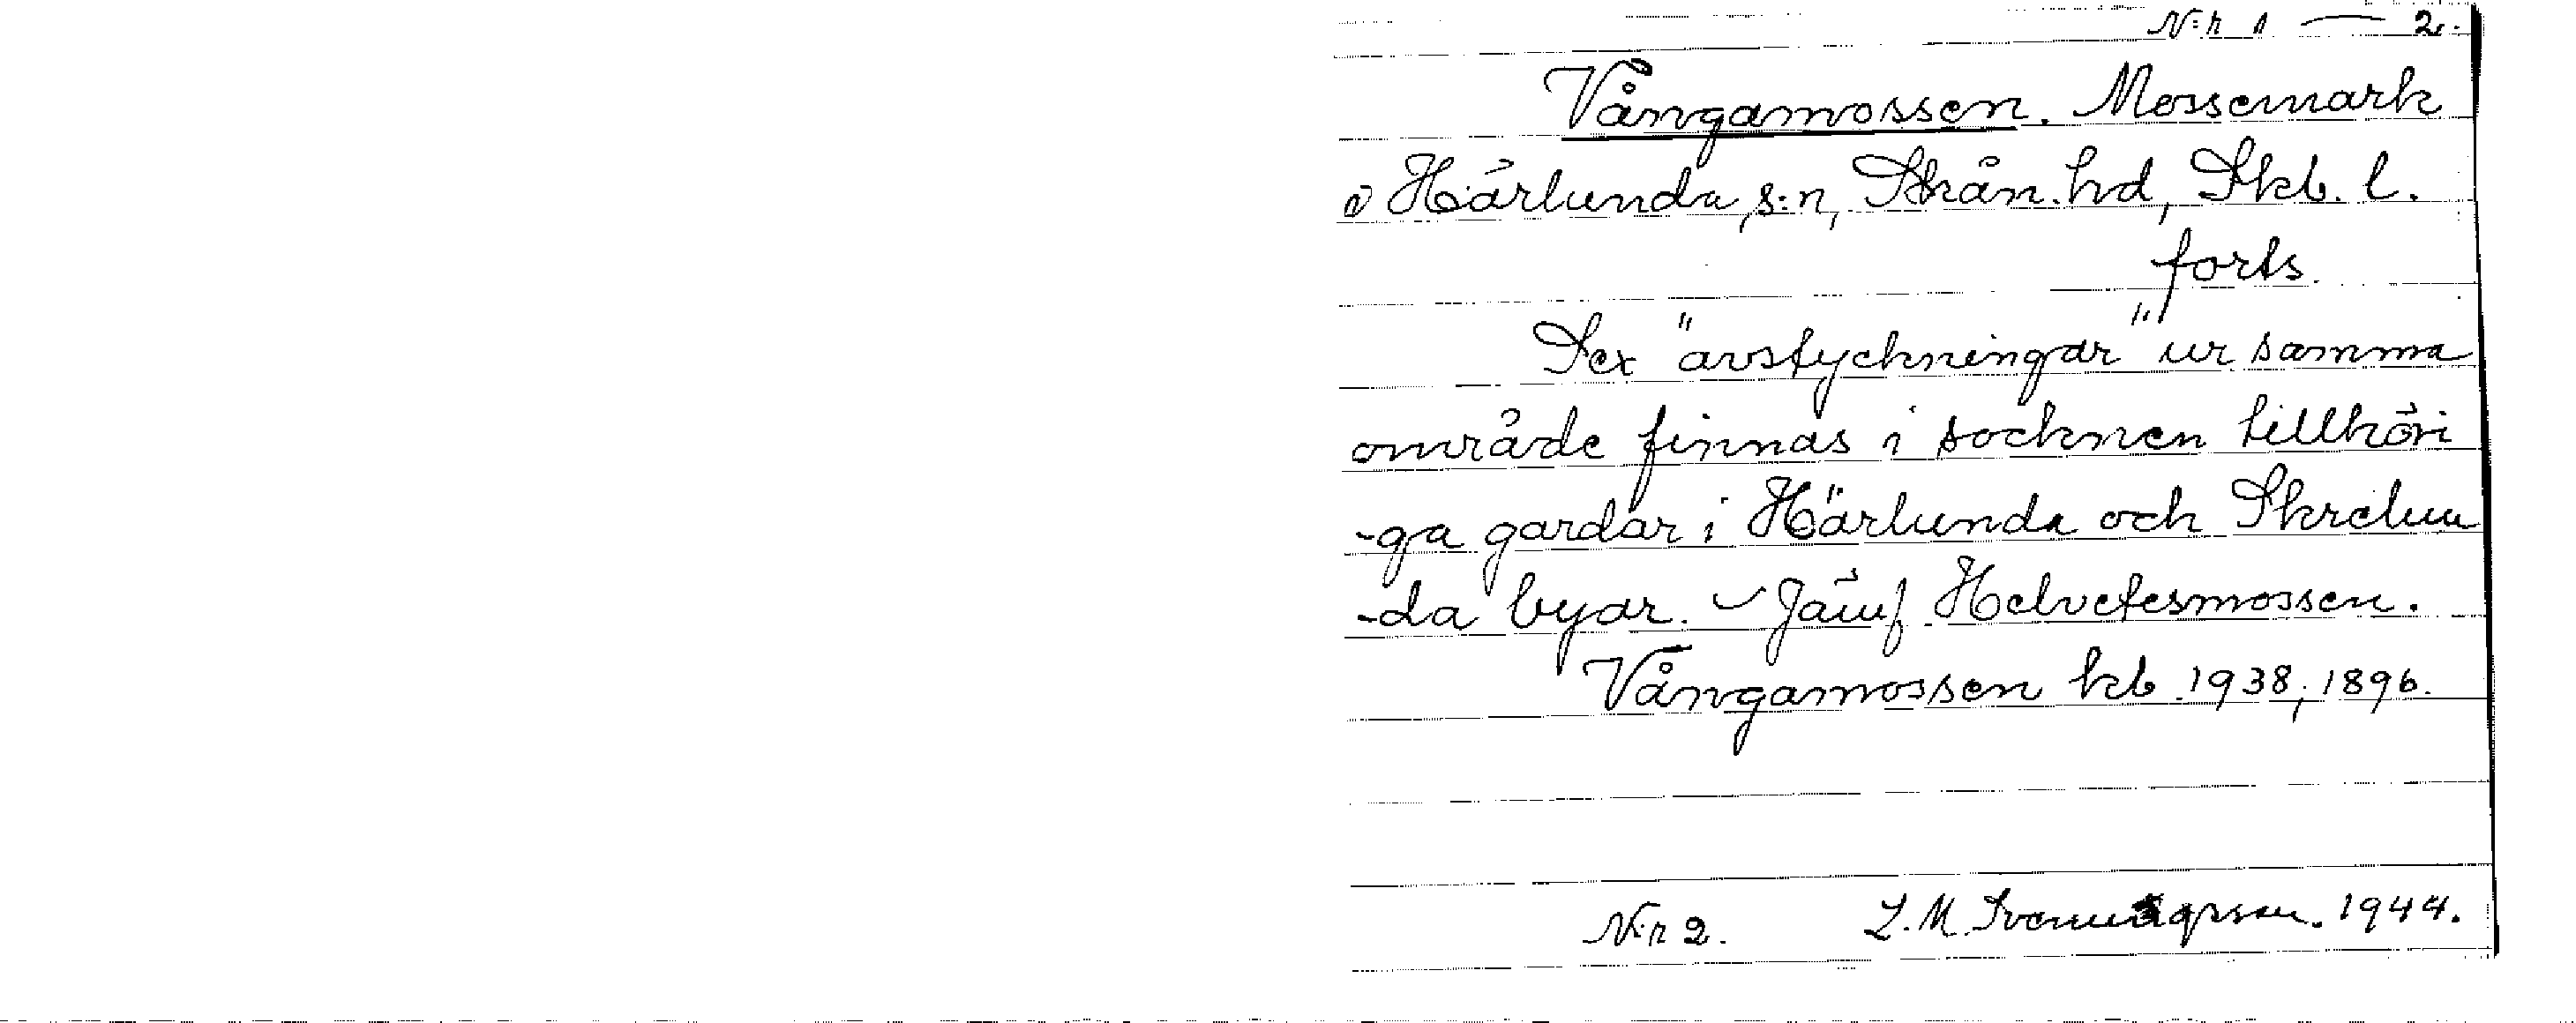 N:r 1 — 2.
Vångamossen. Mossemark
i Härlunda s:n, Skån. hd, Skb. l.
forts.
Sex "avstyckningar" ur samma
område finnas i socknen tillhöri
-ga gardar i Härlunda och Skrelun
-da byar. – Jämf Helvetesmossen.
Vångamossen kb 1938, 1896.
N:r 2. L. M. 1944.